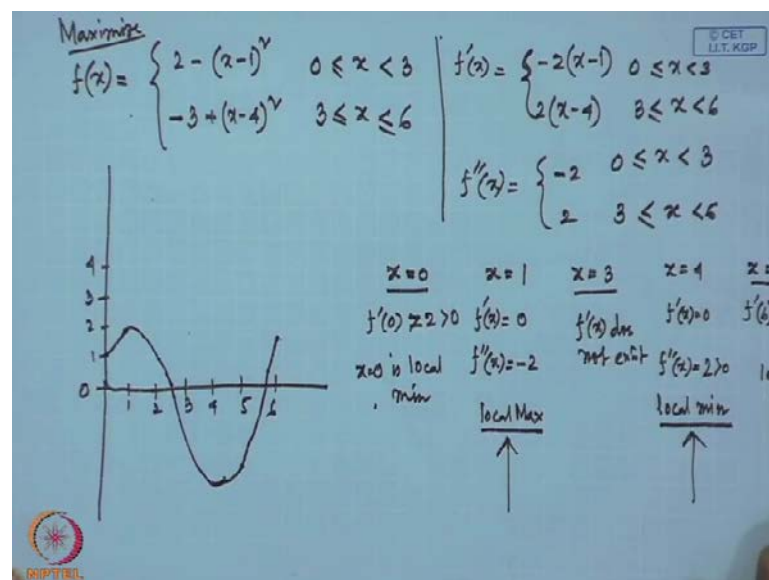 Maximize
f(x) = { 2 - (x-1)² 0 ≤ x < 3
-3 + (x-4)² 3 ≤ x ≤ 6
f'(x) = { -2(x-1) 0 ≤ x < 3
2(x-4) 3 ≤ x < 6
f''(x) = { -2 0 ≤ x < 3
2 3 ≤ x < 6
© CET
I.I.T. KGP
4
3
2
1
0
1 2 3 4 5 6
x=0
f'(0) = 2 > 0
x=0 is local
min
x=1
f'(x) = 0
f''(x) = -2
local Max
x=3
f'(x) does
not exist
x=4
f'(x) = 0
f''(x) = 2 > 0
local min
x=
f'(6)
NPTEL